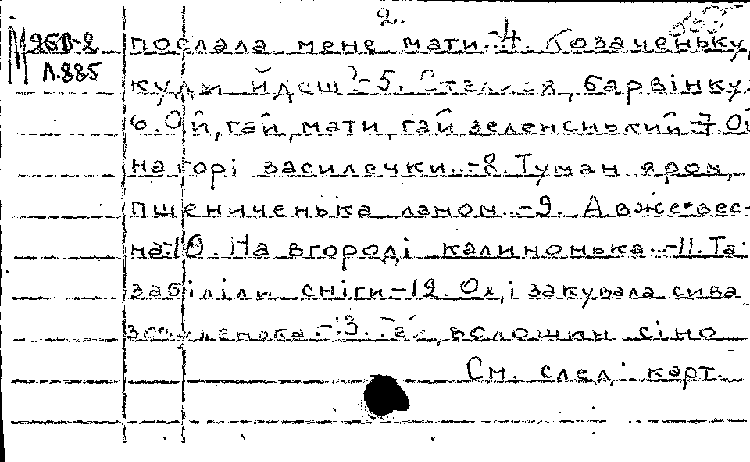 2.
М 268-2 послала мене мати.-4. Козаченьку,
Л.885 куди йдеш?-5. Стелися, барвінку.
6. Ой, гай, мати, гай зеленсиький-7. Ой
на горі василечки.-8. Туман яром,
пшениченька ланом.-9. А вже вес-
на.-10. На вгороді калинонька.-11. Та
забіліли сніги-12. Ох, і закувала сива
сіно
См. след. карт.